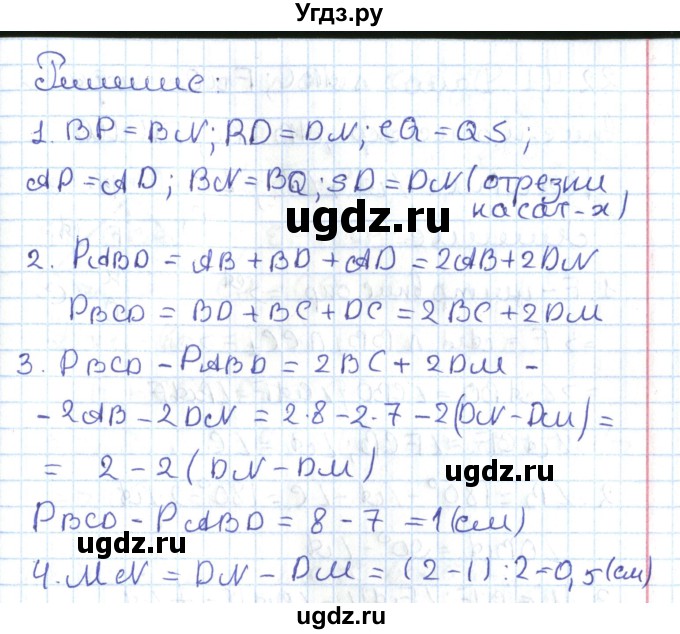 Угдз.ру
Решение:
1. BP = BN; RD = DN; CQ = QS;
AP = AD; BN = BQ; SD = DN (отрезки
касат-х)
ugdz.ru
2. PABD = AB + BD + AD = 2AB + 2DN
PBCD = BD + BC + DC = 2BC + 2DM
3. PBCD - PABD = 2BC + 2DM -
- 2AB - 2DN = 2·8 - 2·7 - 2(DN - DM) =
= 2 - 2(DN - DM)
ugdz.ru
PBCD - PABD = 8 - 7 = 1 (см)
ugdz.ru
4. MN = DN - DM = (2 - 1) : 2 = 0,5 (см)
ugdz.ru